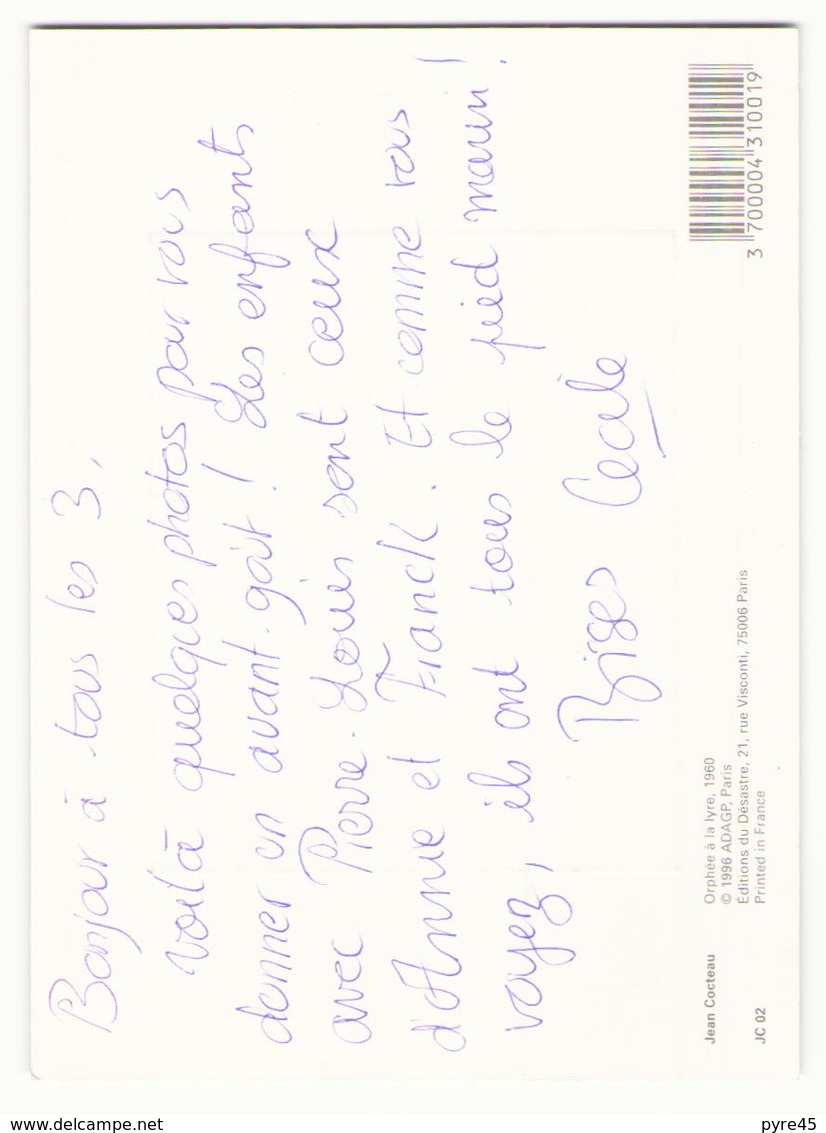 Bonjour à tous les 3,
voilà quelques photos pour vous
donner en avant-goût ! Les enfants
avec Pierre-Louis sont ceux
d'Annie et Franck. Et comme vous
voyez, ils ont tous le pied marin !
Bises Cécile
Jean Cocteau
Orphée à la lyre, 1960
© 1996 ADAGP, Paris
Éditions du Désastre, 21, rue Visconti, 75006 Paris
JC 02
Printed in France
3 700004 310019
www.delcampe.net
pyre45